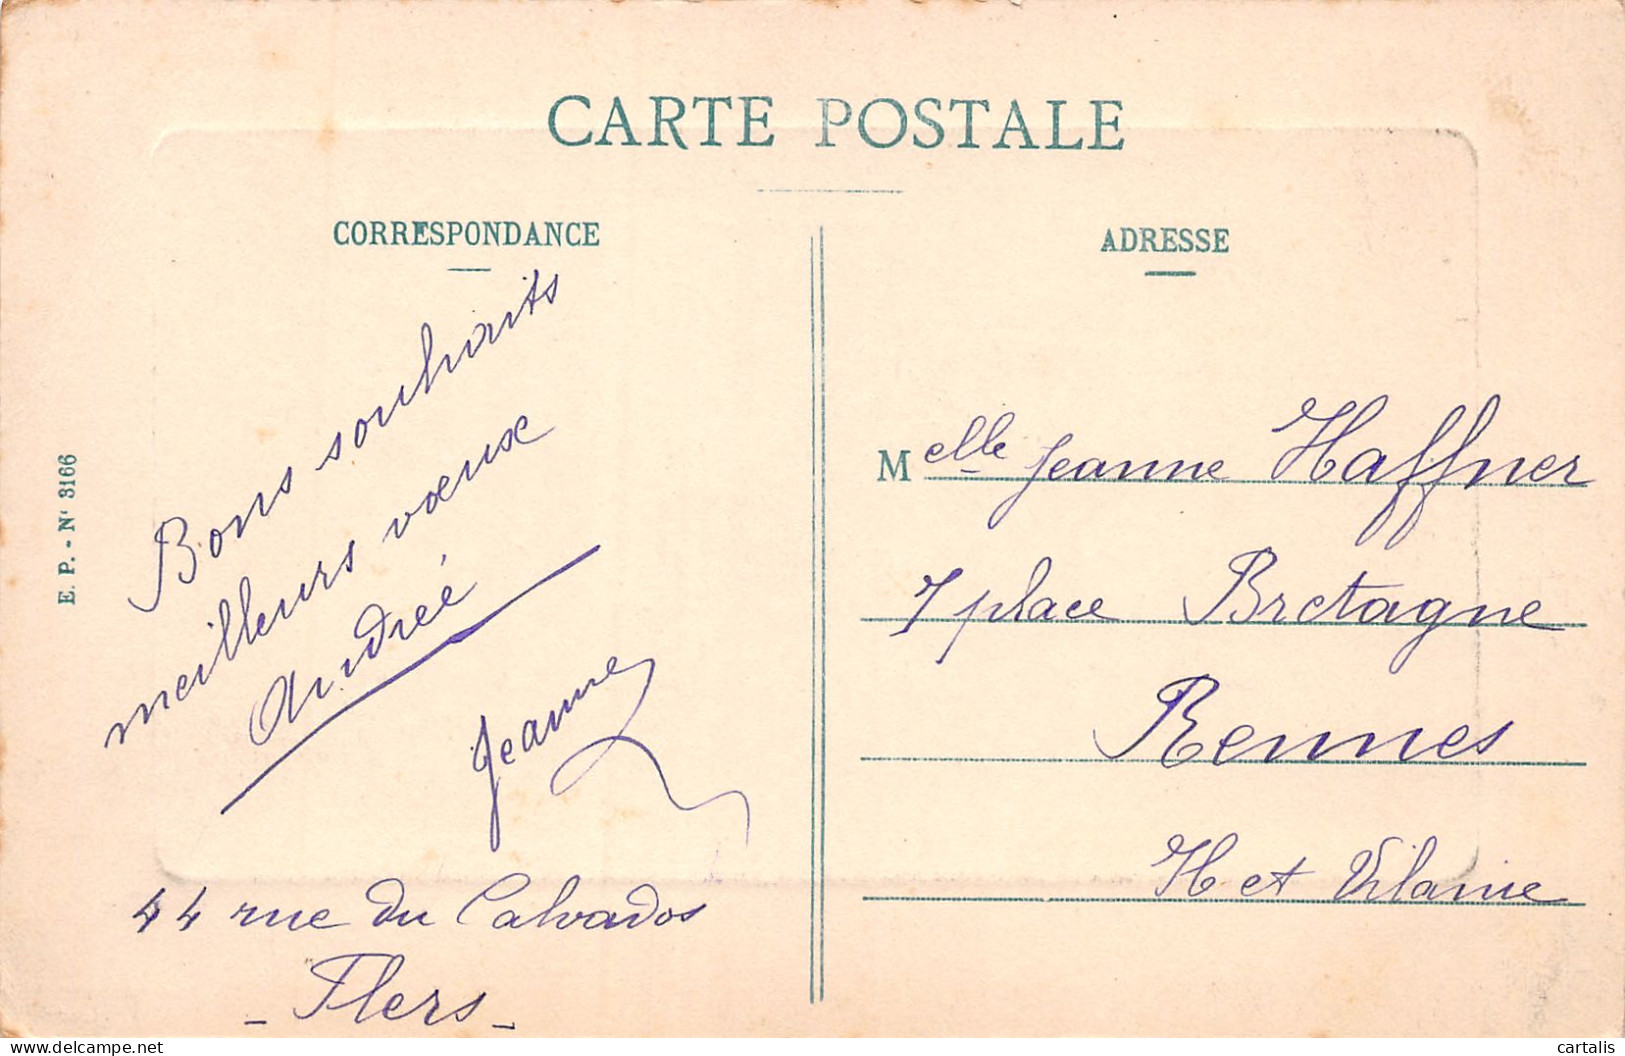 CARTE POSTALE
CORRESPONDANCE
Bons souhaits
meilleurs vœux
Andrée
Jeanne
44 rue du Calvados
- Flers -
E. P. - Nº 3166
ADRESSE
Melle Jeanne Haffner
7 place Bretagne
Rennes
Il et Vilaine
delcampe.net
cartalis